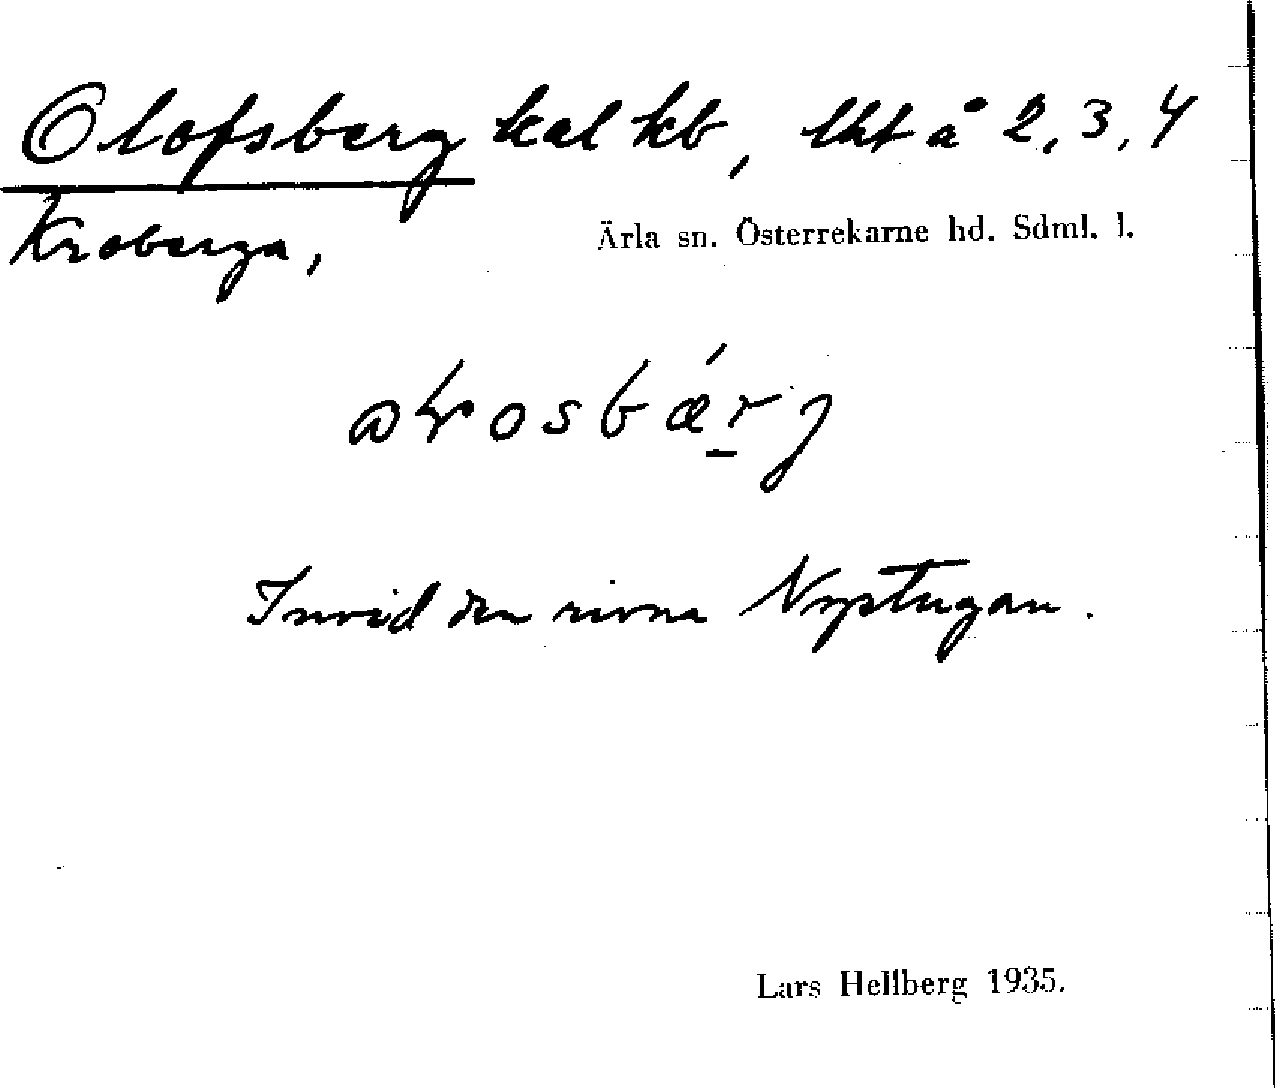 Olofsberg kal kb, lht å 2, 3, 4
Kroberga,
Ärla sn. Österrekarne hd. Sdml. l.
Invid den rivna Nystugan.
Lars Hellberg 1935.